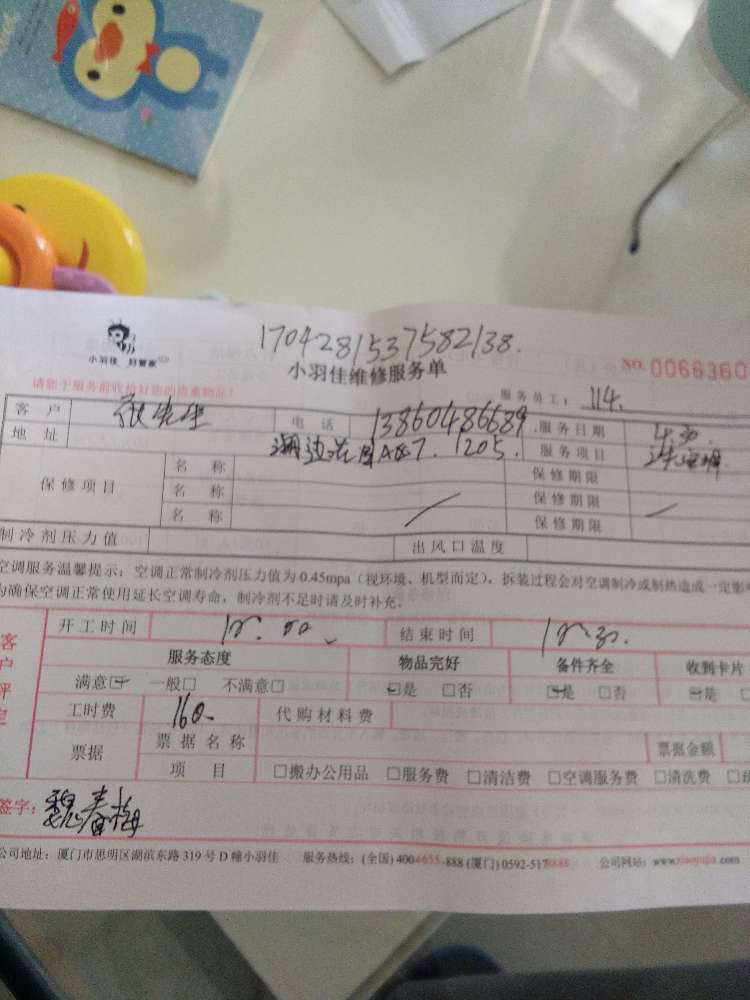 1704281537582138.
小羽佳 好管家
小羽佳维修服务单
NO 0066360
请您于服务前收拾好您的贵重物品！
服务员工： 114.
客 户 电 话 13860486689 服务日期 4.30.
地 址 湖边花园A区7. 1205. 服务项目
保修项目 名 称 保修期限
名 称 保修期限
名 称 保修期限
制冷剂压力值 出风口温度
空调服务温馨提示：空调正常制冷剂压力值为 0.45mpa（视环境、机型而定）。拆装过程会对空调制冷或制热造成一定影
为确保空调正常使用延长空调寿命，制冷剂不足时请及时补充。
客户评定
开工时间 结束时间
服务态度 物品完好 备件齐全 收到卡片
满意☑ 一般□ 不满意□ ☑是 □否 ☑是 □否 ☑是
工时费 160- 代购材料费
票据 票 据 名 称 票据金额
项 目 □搬办公用品 □服务费 □清洁费 □空调服务费 □清洗费
签字： 魏春梅
公司地址：厦门市思明区湖滨东路 319 号 D 幢小羽佳 服务热线：(全国) 400-6655-888 (厦门) 0592-5178888 公司网站：www.xiaoyujia.com